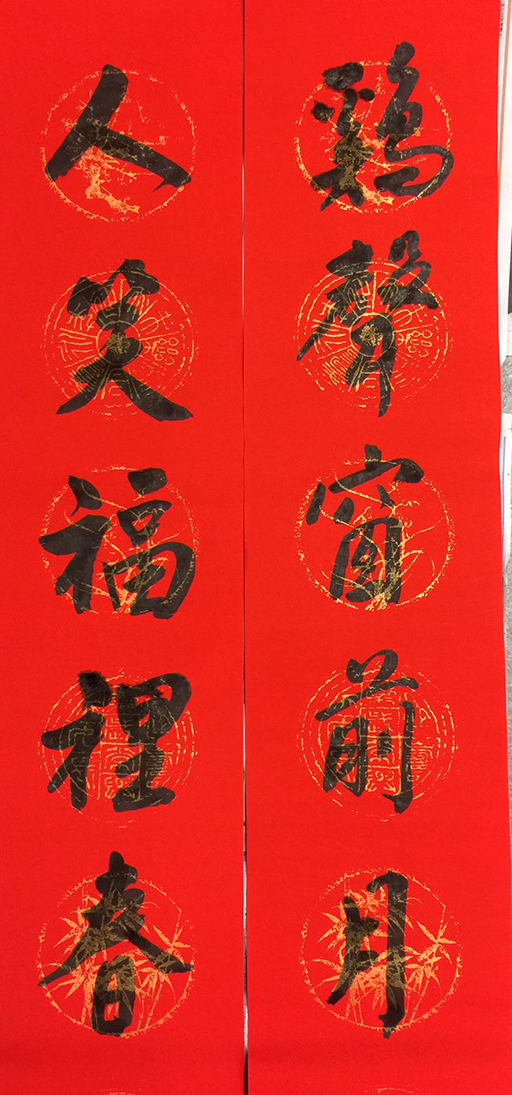 鷄聲窗前月
人笑福裡春